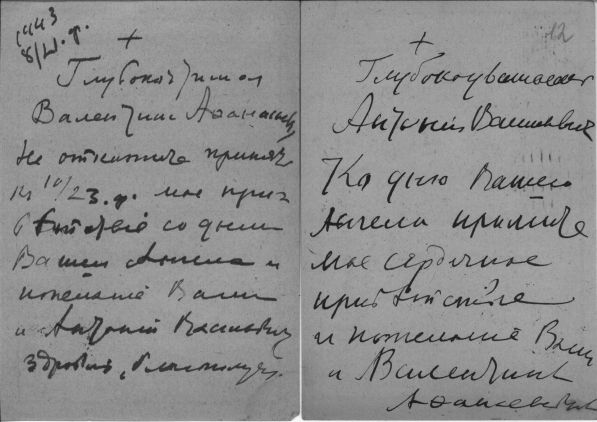 1943
8/II. ф.
+
Глубокочтимая
Валентина Афанасьевна
Не откажите принять
к 10/23. ф. мое при-
ветствие со днем
Вашего Ангела и
пожелание Вам
и Антонию Васильевичу
здоровья, благополучия.
12
+
Глубокоуважаемый
Антоний Васильевич
Ко дню Вашего
Ангела примите
мое сердечное
приветствие
и пожелание Вам
и Валентине
Афанасьевне